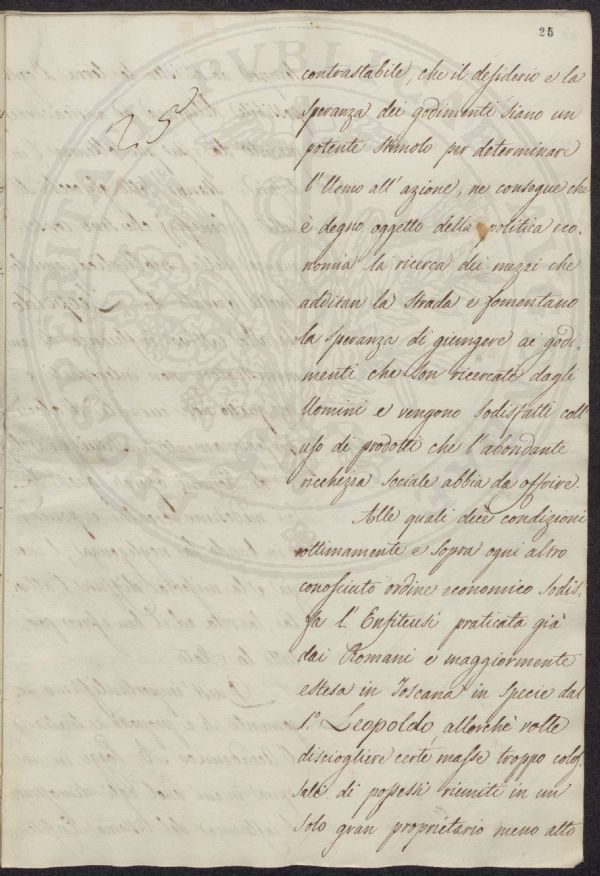 25
25
contrastabile, che il desiderio e la
speranza dei godimenti siano un
potente stimolo per determinare
l'Uomo all'azione, ne consegue che
è degno oggetto della politica eco-
nomia la ricerca dei mezzi che
additan la strada e fomentano
la speranza di giungere ai godi-
menti che son ricercati dagli
Uomini e vengono sodisfatti coll'
uso di prodotti che l'abondante
ricchezza sociale abbia da offrire.
Alle quali due condizioni
ottimamente e sopra ogni altro
conosciuto ordine economico sodis-
fa l'Enfiteusi praticata già
dai Romani e maggiormente
estesa in Toscana in specie dal
1.º Leopoldo, allorchè volle
disciogliere certe masse troppo colos-
sali di possessi riuniti in un
solo gran proprietario meno atto